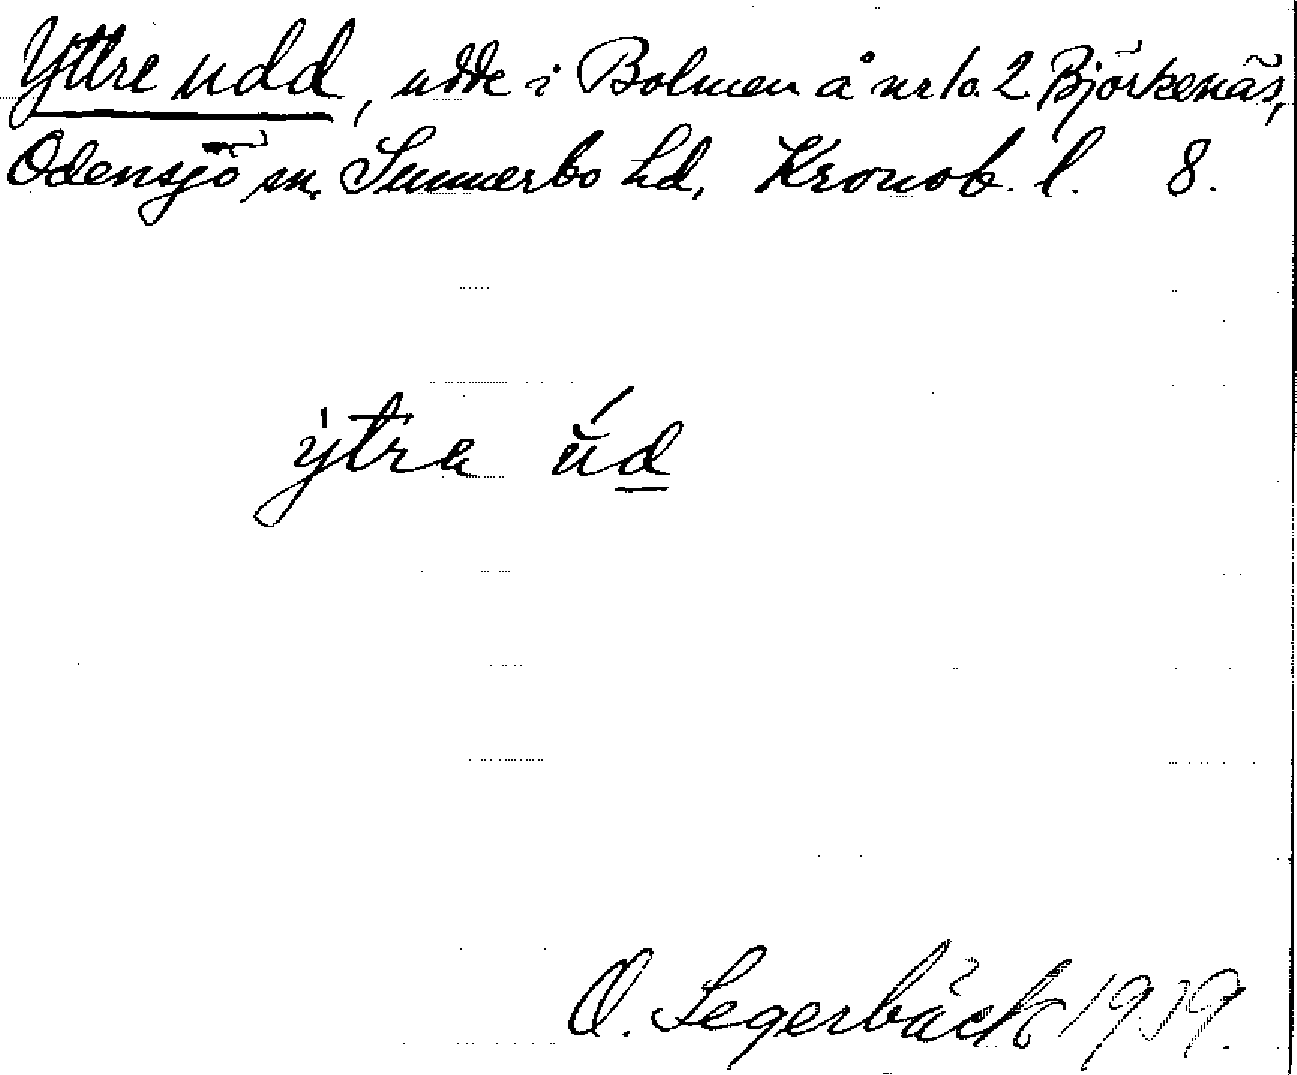 Yttre udd, udde i Bolmen å nr 1o. 2 Björkenäs,
Odensjö sn, Sunnerbo hd, Kronob. l. 8.
ýtra úd
O. Segerbäck 1939.